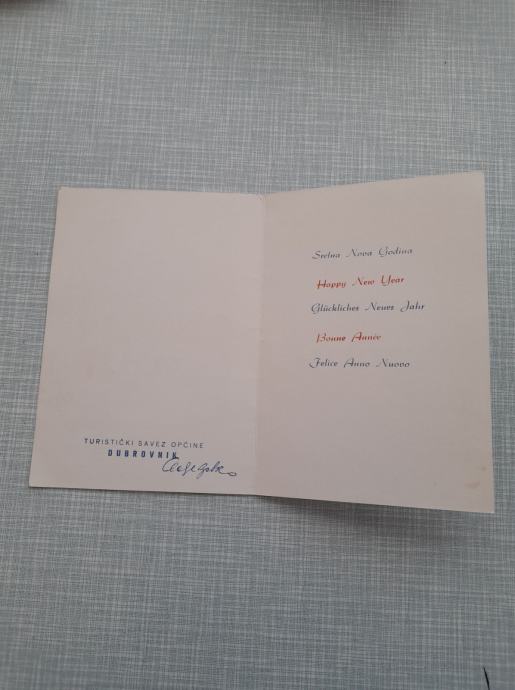 TURISTIČKI SAVEZ OPČINE
DUBROVNIK
Sretna Nova Godina
Happy New Year
Glückliches Neues Jahr
Bonne Année
Felice Anno Nuovo